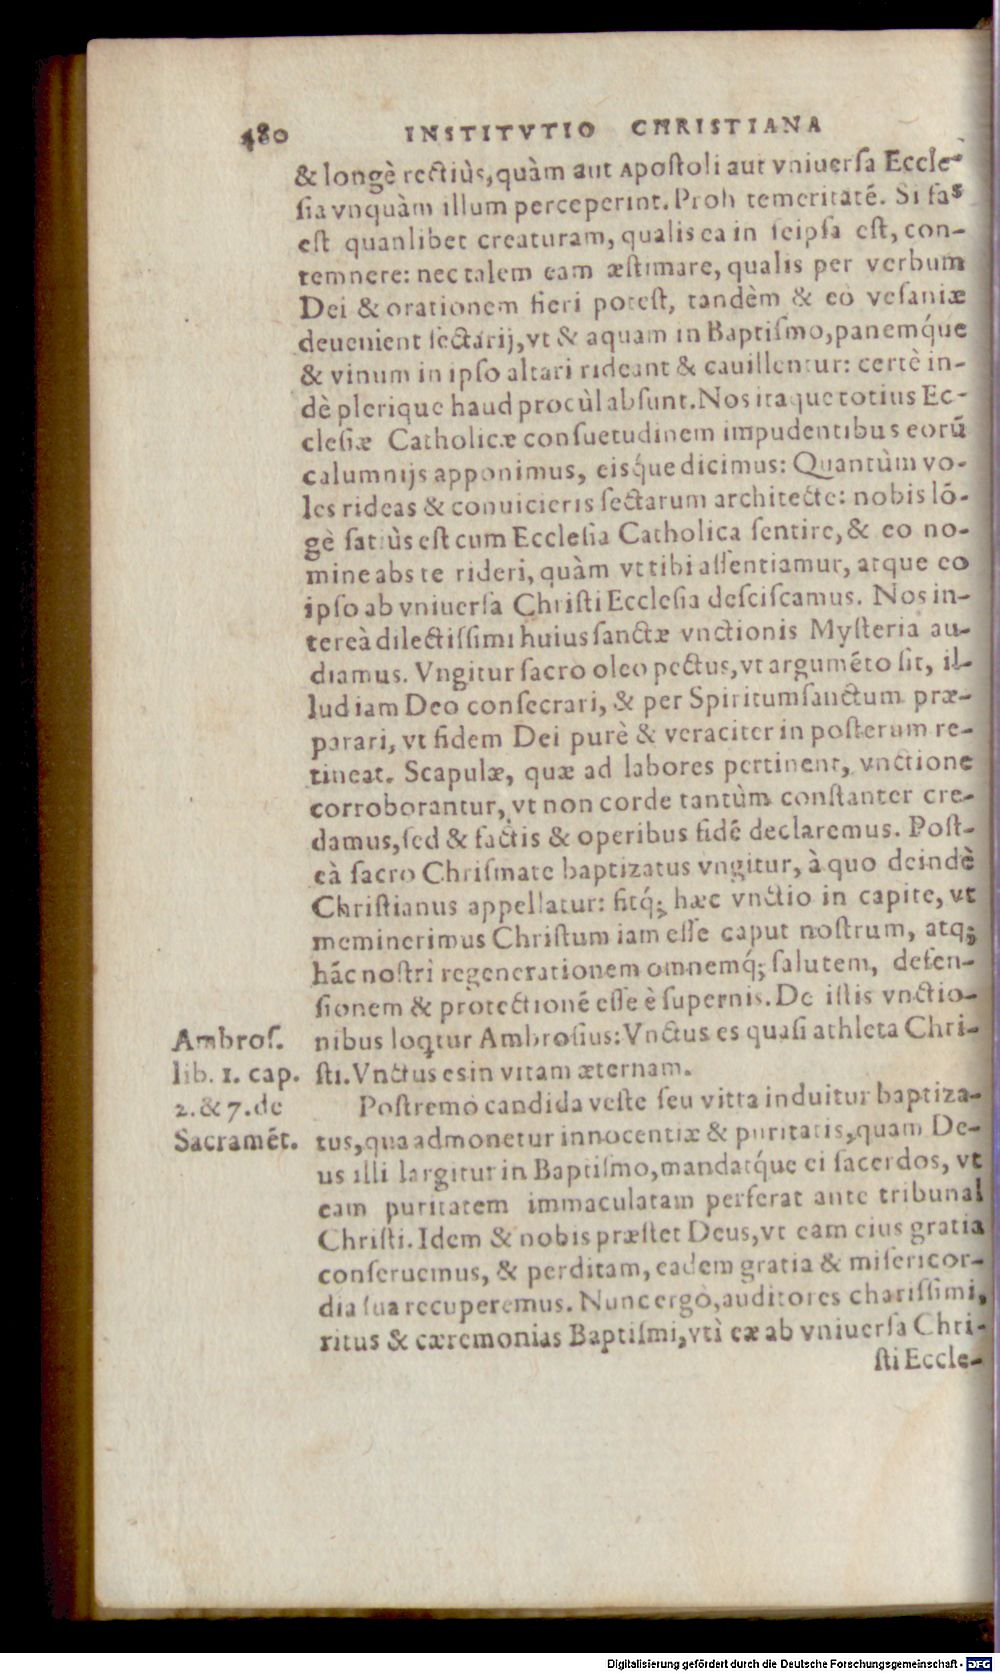 480 INSTITVTIO CHRISTIANA
& longè rectiùs, quàm aut Apostoli aut vniuersa Eccle-
sia vnquàm illum perceperint. Proh temeritatē. Si fas
est quanlibet creaturam, qualis ea in seipsa est, con-
temnere: nec talem eam æstimare, qualis per verbum
Dei & orationem fieri potest, tandèm & eò vesaniæ
deuenient sectarij, vt & aquam in Baptismo, panemq́ue
& vinum in ipso altari rideant & cauillentur: certè in-
dè plerique haud procùl absunt. Nos itaque totius Ec-
clesiæ Catholicæ consuetudinem impudentibus eorū
calumnijs apponimus, eisq́ue dicimus: Quantùm vo-
les rideas & conuicieris sectarum architecte: nobis lō-
gè satiùs est cum Ecclesia Catholica sentire, & eo no-
mine abs te rideri, quàm vt tibi assentiamur, atque eo
ipso ab vniuersa Christi Ecclesia desciscamus. Nos in-
tereà dilectissimi huius sanctæ vnctionis Mysteria au-
diamus. Vngitur sacro oleo pectus, vt argumēto sit, il-
lud iam Deo consecrari, & per Spiritumsanctum præ-
parari, vt fidem Dei purè & veraciter in posterum re-
tineat. Scapulæ, quæ ad labores pertinent, vnctione
corroborantur, vt non corde tantùm constanter cre-
damus, sed & factis & operibus fidē declaremus. Post-
eà sacro Chrismate baptizatus vngitur, à quo deindè
Christianus appellatur: fitq́; hæc vnctio in capite, vt
meminerimus Christum iam esse caput nostrum, atq;
hāc nostri regenerationem omnemq́; salutem, defen-
sionem & protectionē esse è supernis. De istis vnctio-
Ambros. nibus loqtur Ambrosius: Vnctus es quasi athleta Chri-
lib. 1. cap. sti. Vnctus es in vitam æternam.
2. & 7. de Postremò candida veste seu vitta induitur baptiza-
Sacramēt. tus, qua admonetur innocentiæ & puritatis, quam De-
us illi largitur in Baptismo, mandatq́ue ei sacerdos, vt
eam puritatem immaculatam perferat ante tribunal
Christi. Idem & nobis præstet Deus, vt eam eius gratia
conseruemus, & perditam, eadem gratia & misericor-
dia sua recuperemus. Nunc ergò, auditores charissimi,
ritus & cæremonias Baptismi, vtì eæ ab vniuersa Chri-
sti Eccle-
Digitalisierung gefördert durch die Deutsche Forschungsgemeinschaft - DFG